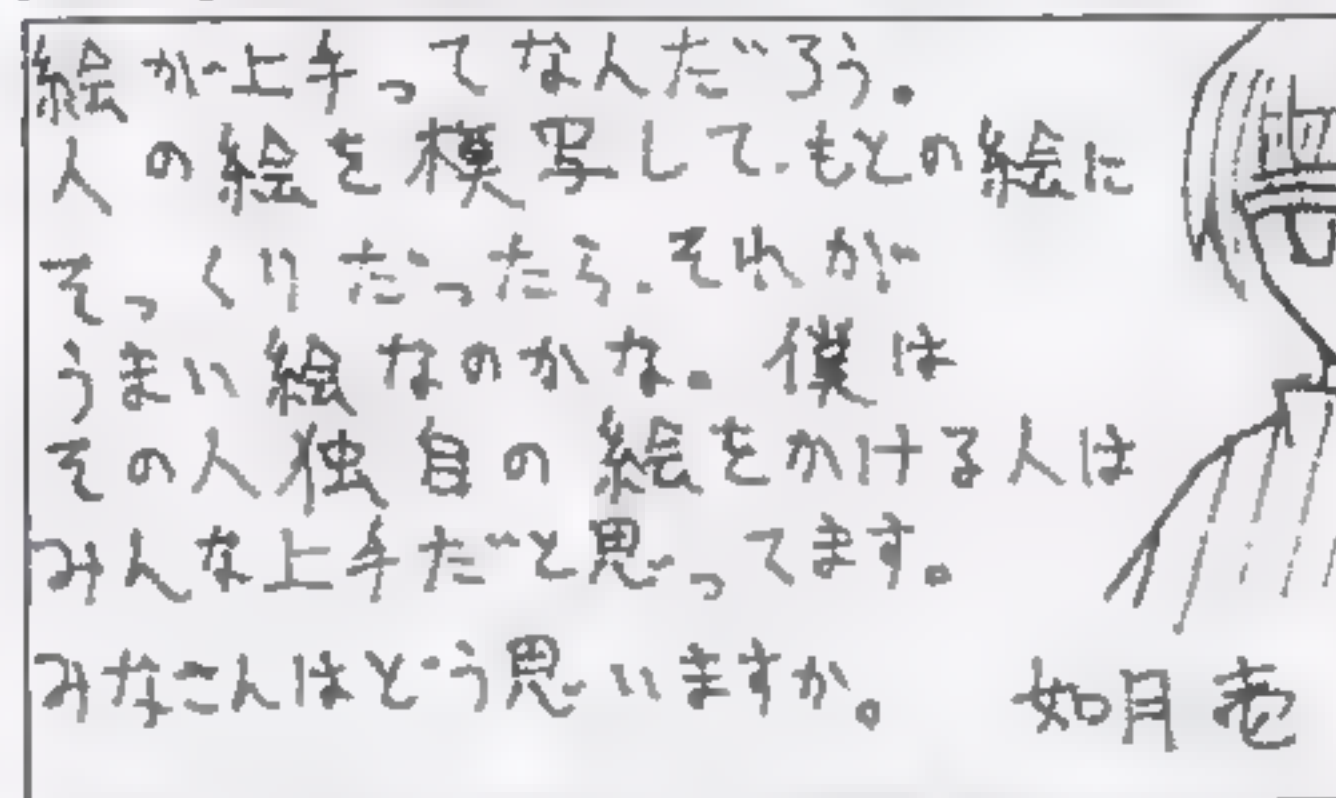 絵が上手ってなんだろう。
人の絵を模写して、もとの絵に
そっくりだったら、それが
うまい絵なのかな。僕は
その人独自の絵をかける人は
みんな上手だと思ってます。
みなさんはどう思いますか。
如月壱